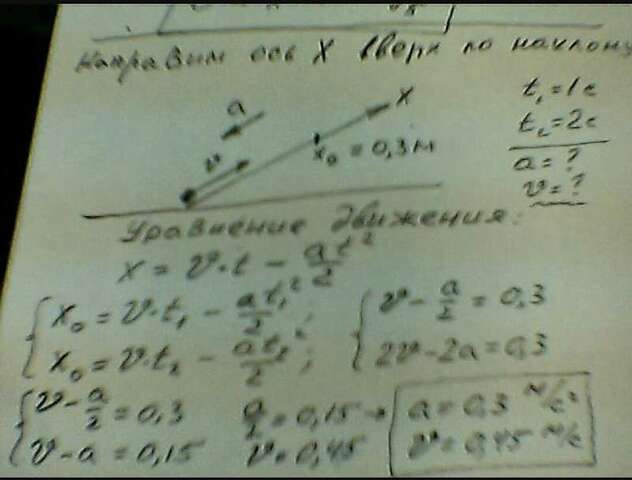 Направим ось X вверх по наклону
t₁=1c
t₂=2c
a=?
v=?
a
v
X
x₀=0,3м
Уравнение движения:
x = v·t - at²/2
x₀ = v·t₁ - at₁²/2;
x₀ = v·t₂ - at₂²/2;
v - a/2 = 0,3
2v - 2a = 0,3
v - a/2 = 0,3
v - a = 0,15
a/2 = 0,15 →
v = 0,45
a = 0,3 м/c²
v = 0,45 м/c